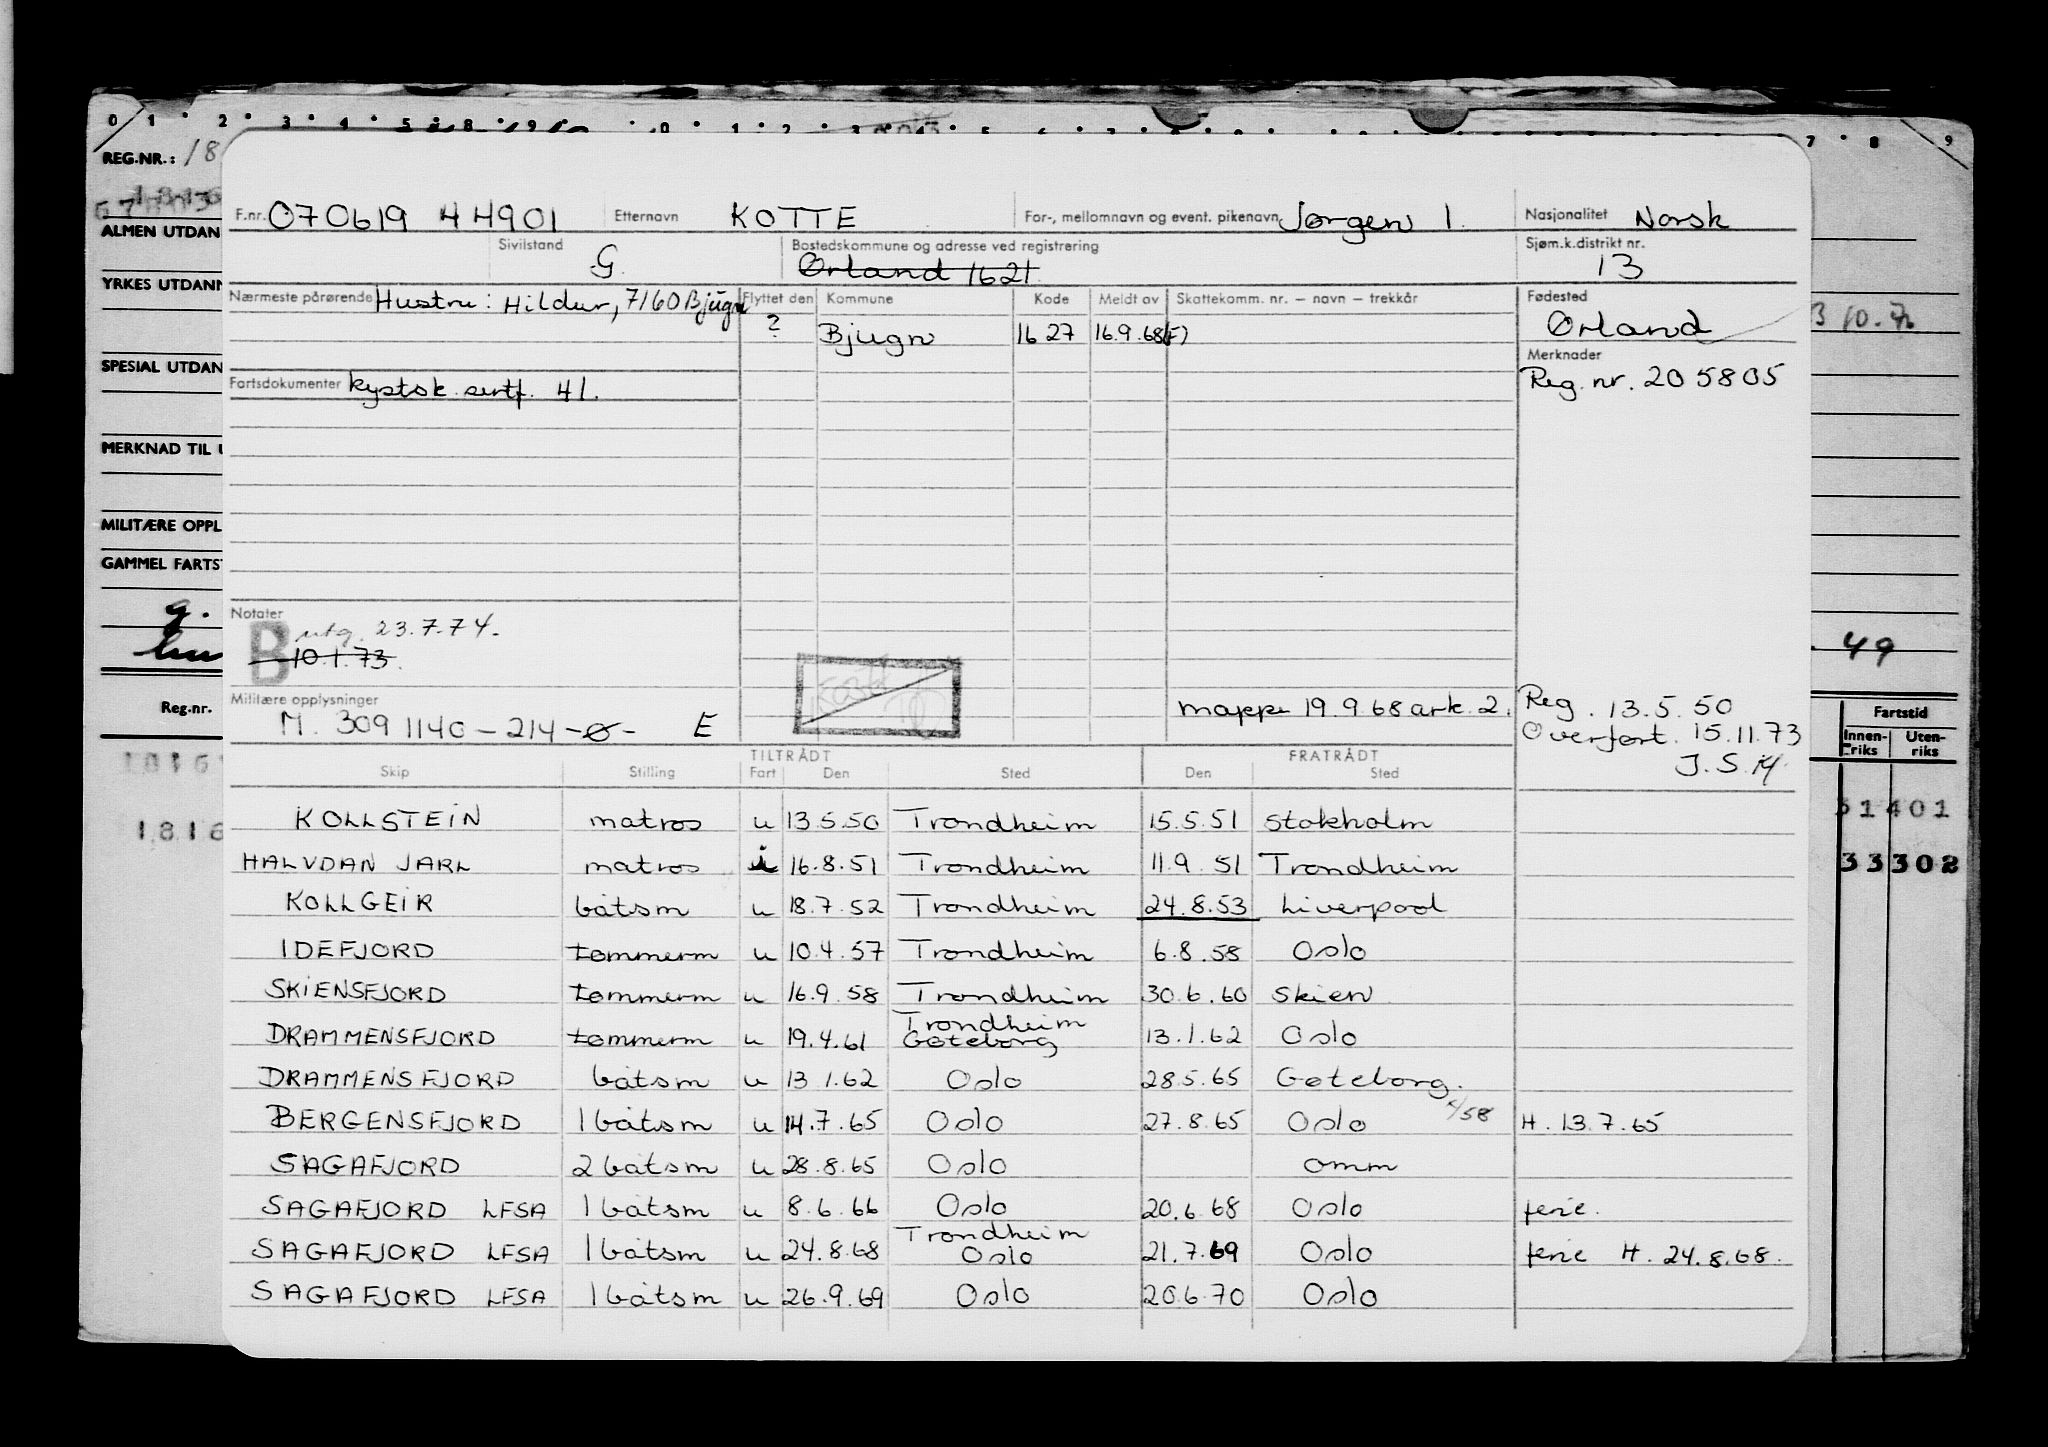 0 1 2 3 4 5 8 9 0 1 2 3 4 5 6 7 8 9
REG.NR.: 18
ALMEN UTDAN
YRKES UTDANN
SPESIAL UTDAN
MERKNAD TIL
MILITÆRE OPPL
GAMMEL FARTS
g.
Reg.nr.
1816
1816
F.nr. 070619 44901 Etternavn KOTTE For-, mellomnavn og event. pikenavn Jørgen I. Nasjonalitet Norsk
Sivilstand G. Bostedskommune og adresse ved registrering Ørland 1621 Sjøm.k.distrikt nr. 13
Nærmeste pårørende Hustru: Hildur, 7160 Bjugn Flyttet den Kommune Kode Meldt av Skattekomm. nr. – navn – trekkår Fødested
? Bjugn 1627 16.9.68(F) Ørland
Merknader
Reg.nr. 205805
Fartsdokumenter kystsk. sertf. 41.
Notater
B utg. 23.7.74.
10.1.73.
Militære opplysninger
M. 309 1140 – 214 – Ø – E
mappe 19.9.68 ark. 2.
Reg. 13.5.50
Overført. 15.11.73
J.S.M.
3 10.
49
Fartstid
Innenriks Utenriks
51401
33302
TILTRÅDT FRATRÅDT
Skip Stilling Fart Den Sted Den Sted
KOLLSTEIN matros u 13.5.50 Trondheim 15.5.51 Stokholm
HALVDAN JARL matros i 16.8.51 Trondheim 11.9.51 Trondheim
KOLLGEIR båtsm u 18.7.52 Trondheim 24.8.53 Liverpool
IDEFJORD tømmerm u 10.4.57 Trondheim 6.8.58 Oslo
SKIENSFJORD tømmerm u 16.9.58 Trondheim 30.6.60 Skien
DRAMMENSFJORD tømmerm u 19.4.61 Trondheim Gøteborg 13.1.62 Oslo
DRAMMENSFJORD båtsm u 13.1.62 Oslo 28.5.65 Gøteborg.
BERGENSFJORD 1 båtsm u 14.7.65 Oslo 27.8.65 Oslo /58 H. 13.7.65
SAGAFJORD 2 båtsm u 28.8.65 Oslo omm
SAGAFJORD LFSA 1 båtsm u 8.6.66 Oslo 20.6.68 Oslo ferie.
SAGAFJORD LFSA 1 båtsm u 24.8.68 Trondheim Oslo 21.7.69 Oslo ferie H. 24.8.68.
SAGAFJORD LFSA 1 båtsm u 26.9.69 Oslo 20.6.70 Oslo